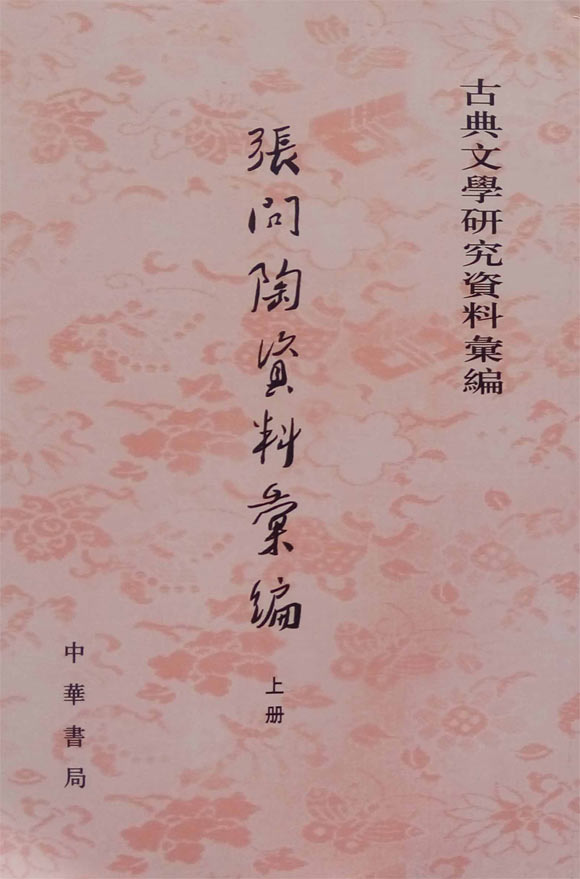 古典文學研究資料彙編
張問陶資料彙編
上册
中華書局